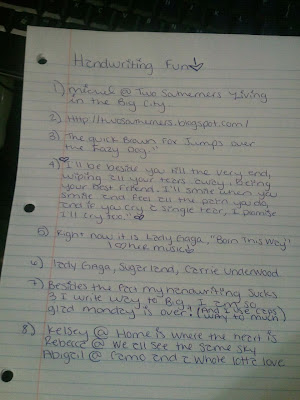 Handwriting Fun ↓
1) @ Two Southerners Living
in the Big City.
2) Http://twosoutherners.blogspot.com/
3) The quick Brown Fox Jumps over
the Lazy Dog.
4) "I'll be beside you till the very end,
wiping all your tears away, Being
your Best Friend. I'll smile when you
smile and feel all the pain you do,
and if you cry a single tear, I promise
I'll cry too."
5) Right now it is Lady Gaga, "Born This Way"
I ♡ her music
6) Lady Gaga, Sugarland, Carrie Underwood
7) Besides the fact my handwriting sucks
& I write way to Big, I am so
glad monday is over! (And I use caps)
way to much
8) Kelsey @ Home is where the heart is
Rebecca @ We all see the same sky
Abigail @ Camo and a whole lotta love